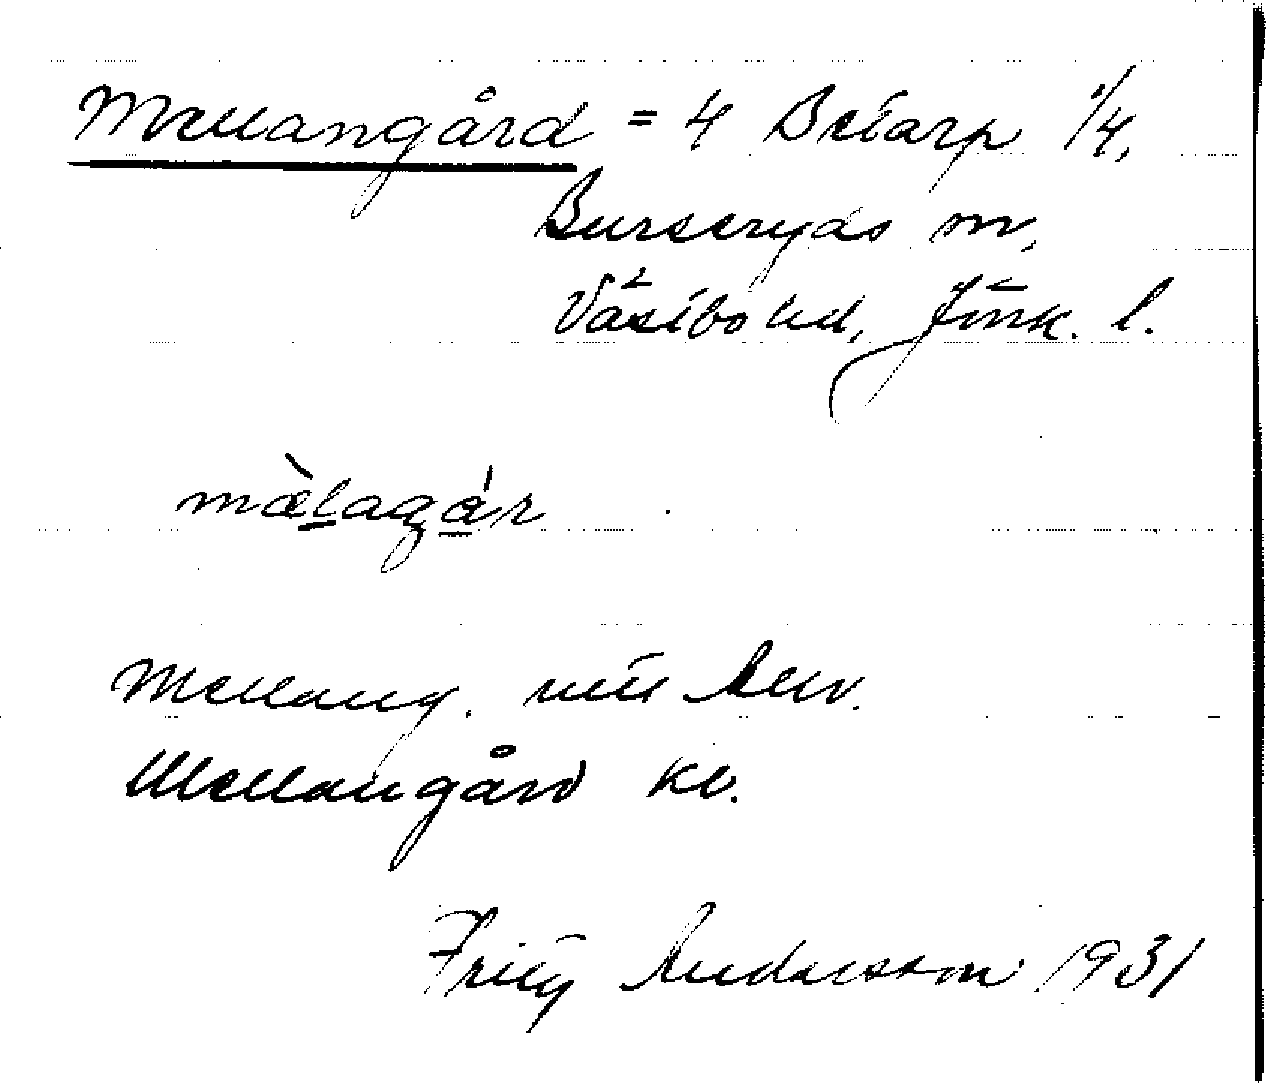 Mellangård = 4 Betarp 1/4,
Burseryds sn,
Västbo hd, Jönk. l.
mæ̀lagár
Mellang.
Mellangård kv.
Fritz Andersson 1931